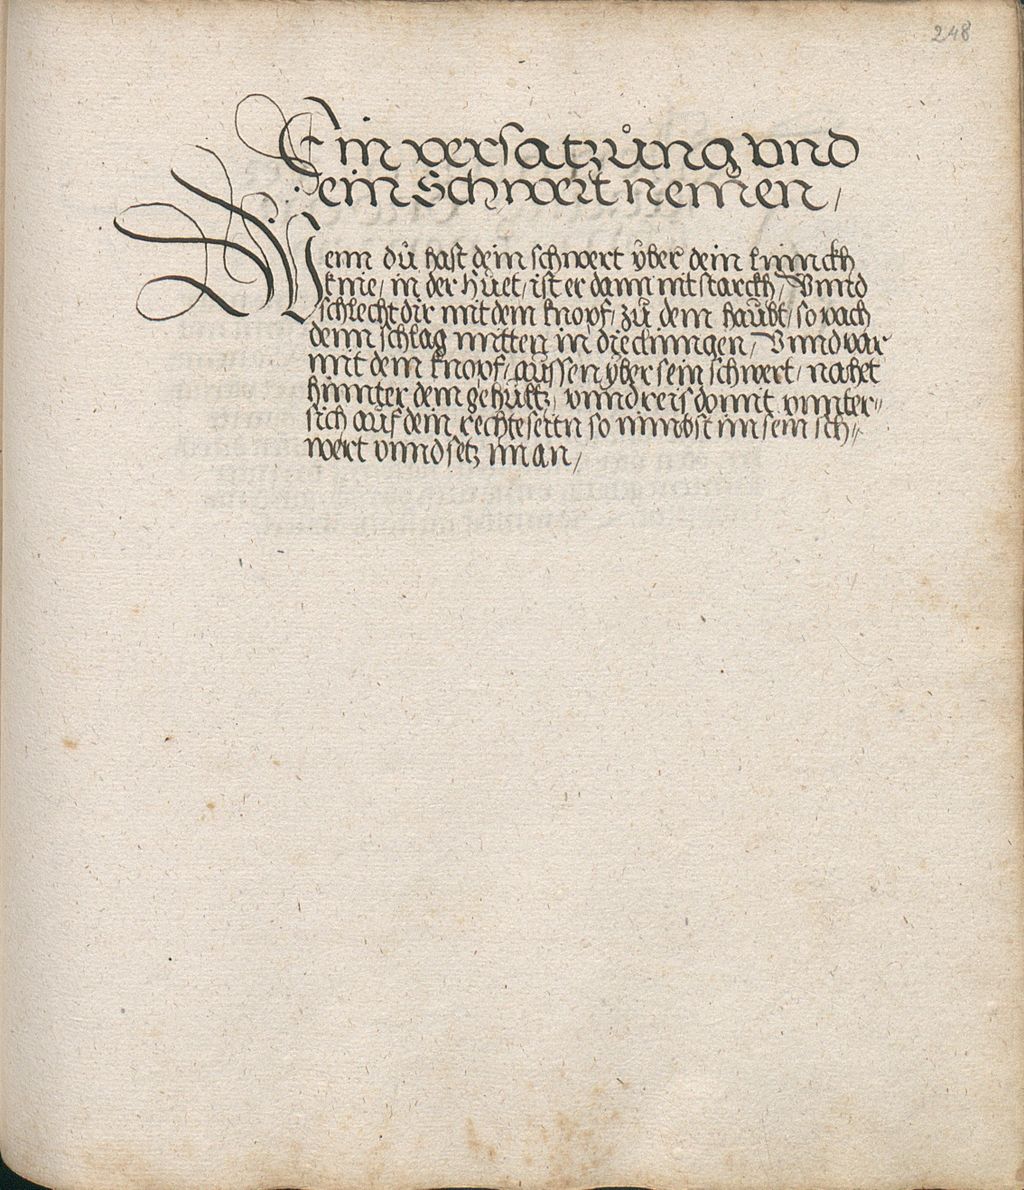 248
Ein versatzůng vnd
dein Schwert nemen,
Wenn dů hast dein schwert ÿber dein linnckh
knie, in der Hůet, ist er dann nit starckh, Vnnd
schlecht dir mit dem knopf, zů dem haůbt, so vach
denn schlag mitten in die clingen, Vnnd var
mit dem knopf, aůssen ÿber sein schwert, nahet
hinnter dem gehültz, vnnd reis domit vnnter=
sich auf dein rechte seitn so nimbst im sein sch=
wert vnnd setz im an,